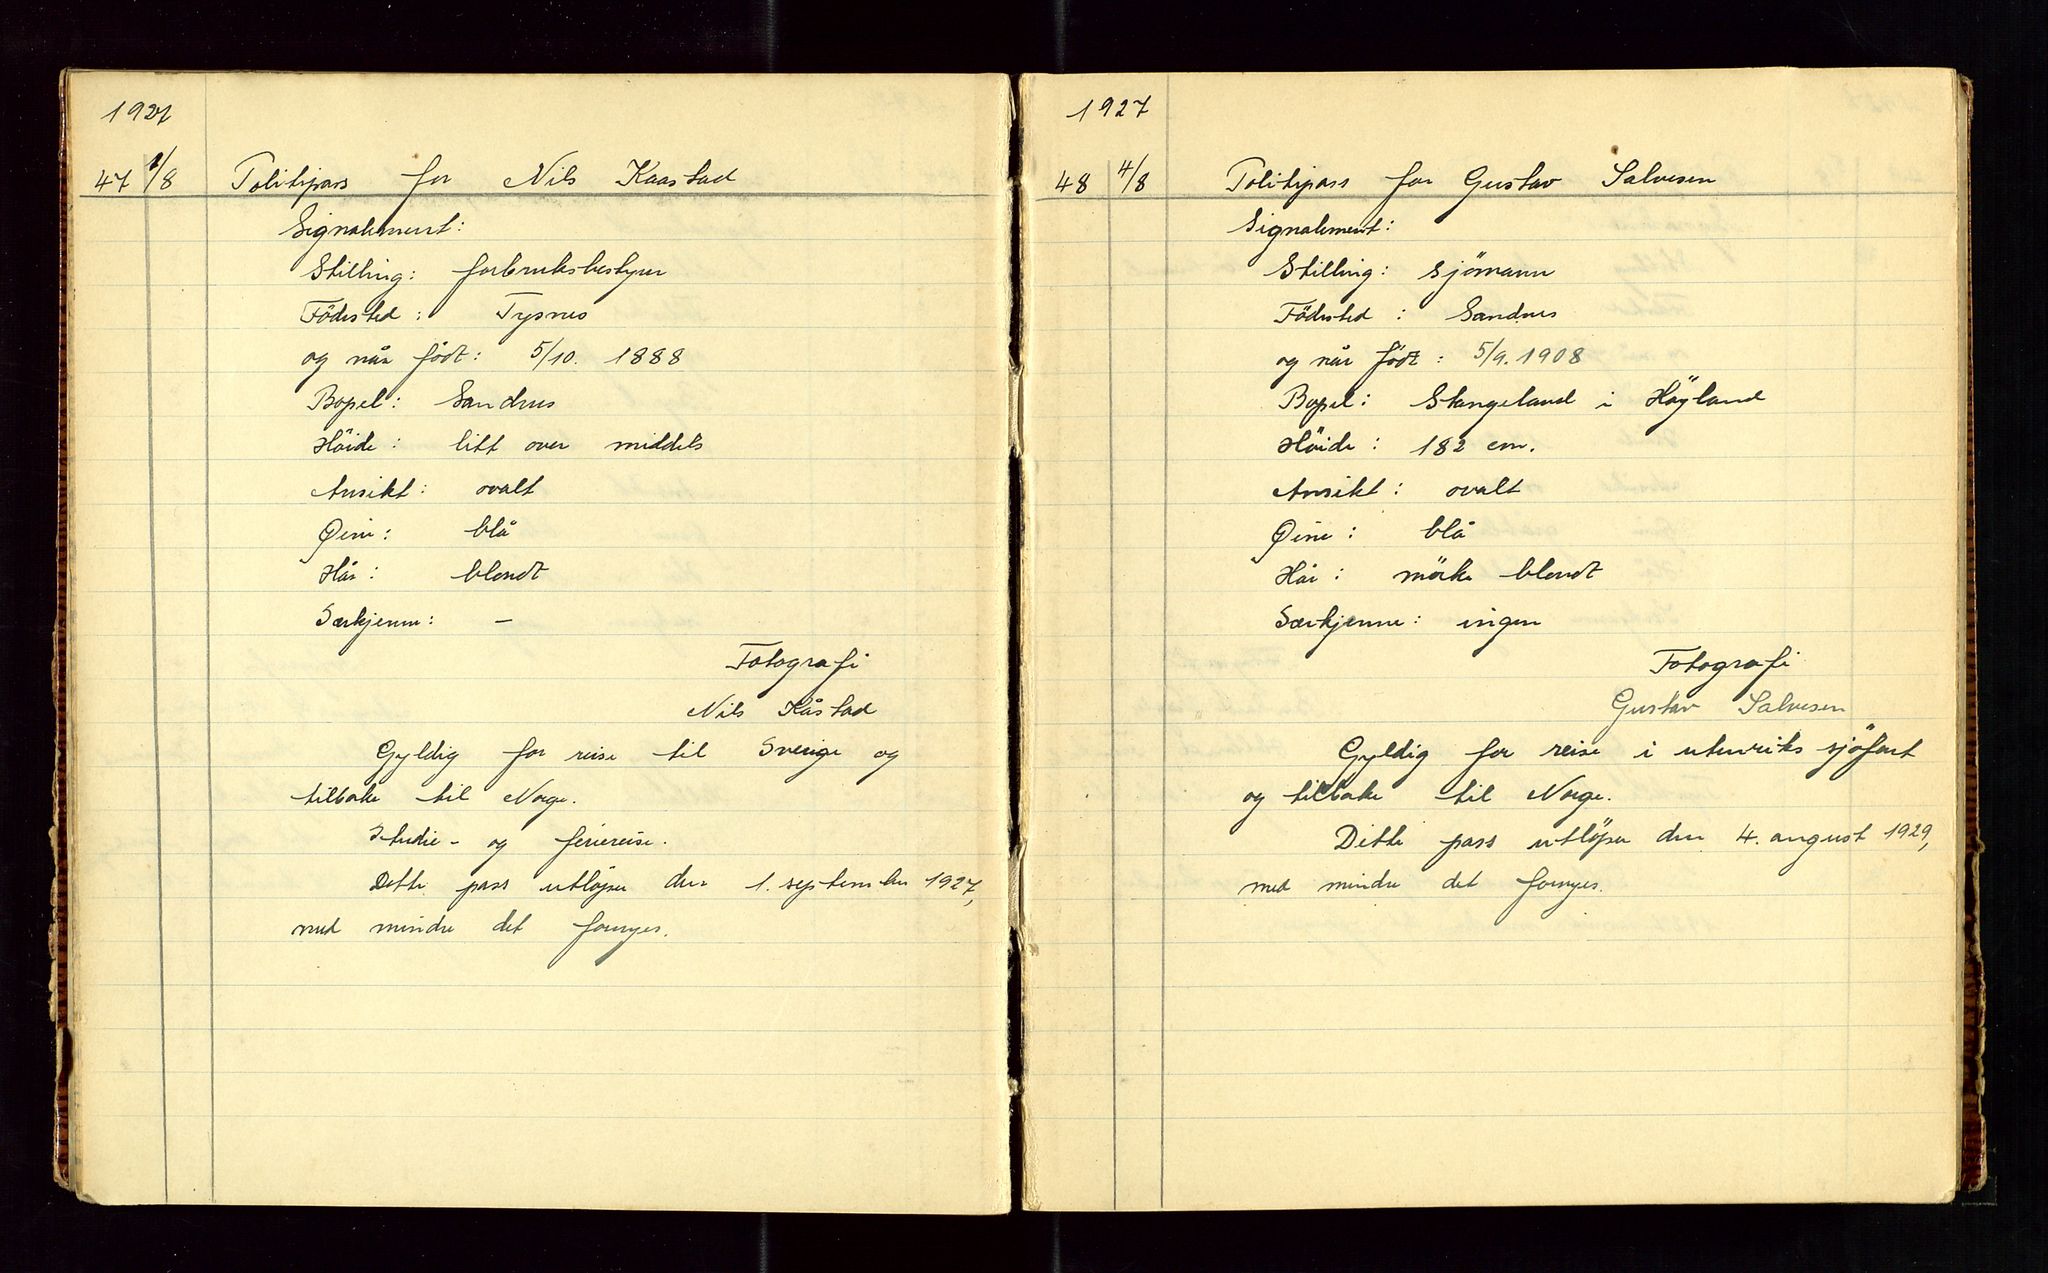 1927
47 1/8 Politipass for Nils Kaastad
Signalement:
Stilling: forbruksbestyrer
Födested: Tysnes
og når födt: 5/10. 1888
Bopel: Sandnes
Höide: litt over middels
Ansikt: ovalt
Øine: blå
Hår: blondt
Særkjenne: –
Fotografi
Nils Kåstad
Gyldig for reise til Sverige og
tilbake til Norge.
Studie- og feriereise.
Dette pass utlöper den 1. september 1927,
med mindre det fornyes.
1927
48 4/8 Politipass for Gustav Salvesen
Signalement:
Stilling: sjömann
Födested: Sandnes
og når födt: 5/9. 1908
Bopel: Stangeland i Höyland
Höide: 182 cm.
Ansikt: ovalt
Øine: blå
Hår: mörke blondt
Særkjenne: ingen
Fotografi
Gustav Salvesen
Gyldig for reise i utenriks sjöfart
og tilbake til Norge.
Dette pass utlöper den 4. august 1929,
med mindre det fornyes.